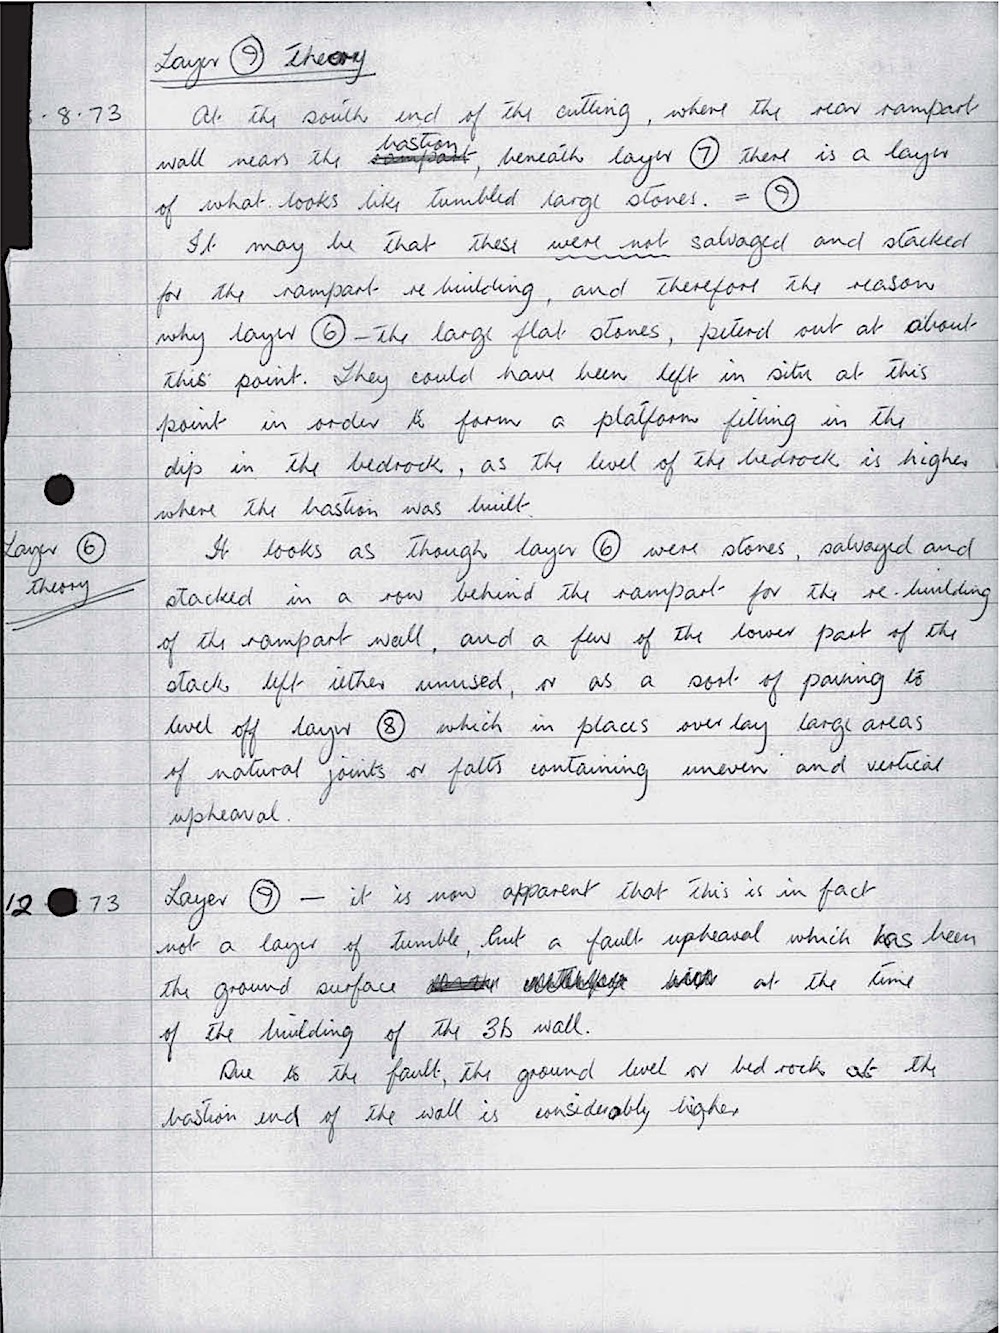 Layer ⑨ Theory
.8.73 At the south end of the cutting, where the rear rampart
wall nears the bastion, beneath layer ⑦ there is a layer
of what looks like tumbled large stones. = ⑨
It may be that these were not salvaged and stacked
for the rampart re building, and therefore the reason
why layer ⑥ – the large flat stones, peterd out at about
this point. They could have been left in situ at this
point in order to form a platform filling in the
dip in the bedrock, as the level of the bedrock is higher
where the bastion was built.
Layer ⑥
theory
It looks as though layer ⑥ were stones, salvaged and
stacked in a row behind the rampart for the re-building
of the rampart wall, and a few of the lower part of the
stack left iether unused, or as a sort of paving to
level off layer ⑧ which in places over lay large areas
of natural joints or falts containing uneven and vertical
upheaval.
12 73 Layer ⑨ — it is now apparent that this is in fact
not a layer of tumble, but a fault upheaval which has been
the ground surface at the time
of the building of the 3b wall.
Due to the fault, the ground level or bed rock at the
bastion end of the wall is considerably higher